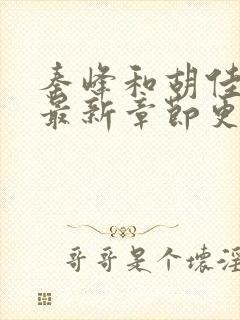 秦峰和胡佳
最新章节更
哥哥是个坏淫